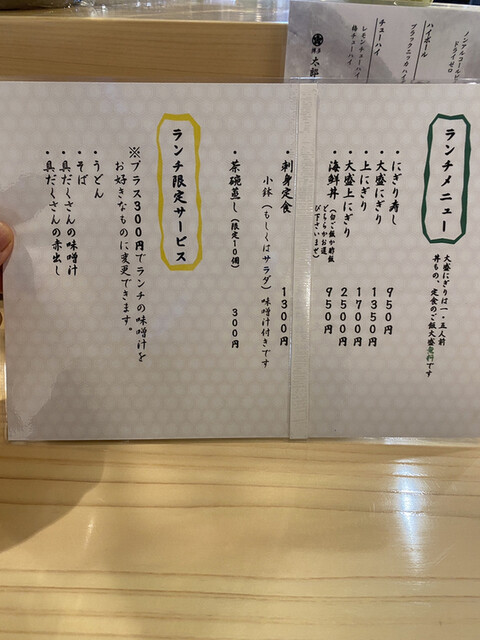 ノンアルコールビ
ドライゼロ
ハイボール
ブラックニッカハイ
チューハイ
レモンチューハイ
梅チューハイ
太郎
ランチメニュー
大盛にぎりは一・五人前
丼もの、定食のご飯大盛無料です
・にぎり寿し 950円
・大盛にぎり 1350円
・上にぎり 1700円
・大盛上にぎり 2500円
・海鮮丼(白ご飯か酢飯どちらかお選び下さいませ) 950円
・刺身定食 1300円
小鉢(もしくはサラダ)味噌汁付きです
・茶碗蒸し(限定10個) 300円
ランチ限定サービス
※プラス300円でランチの味噌汁を
お好きなものに変更できます。
・うどん
・そば
・具だくさんの味噌汁
・具だくさんの赤出し